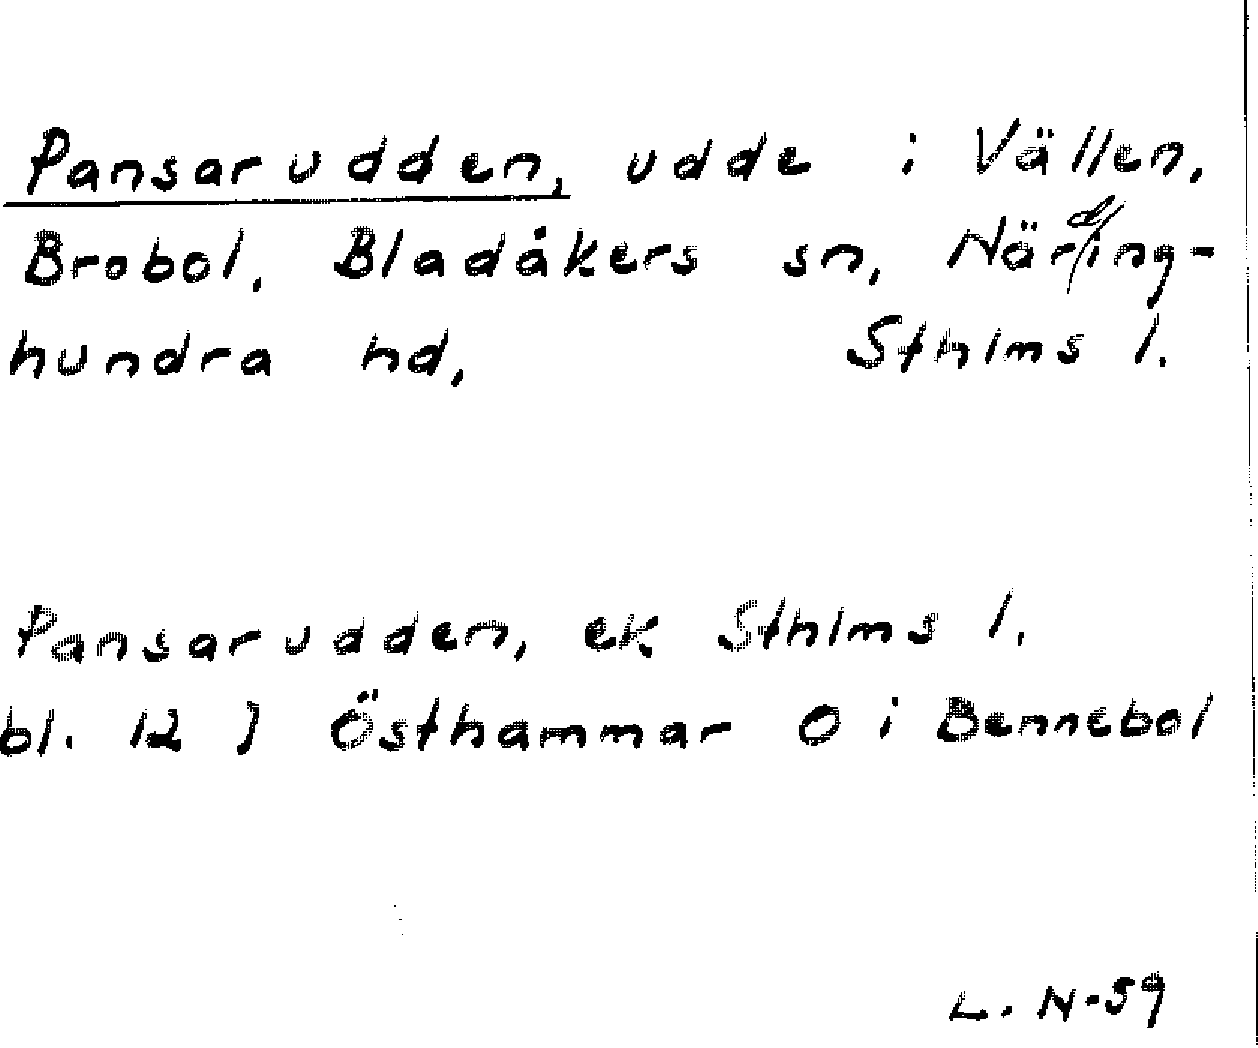 Pansarudden, udde i Vällen,
Brobol, Bladåkers sn, Närding-
hundra hd, Sthlms l.
Pansarudden, ek Sthlms l.
bl. 12 J Östhammar O i Bennebol
L. N-59